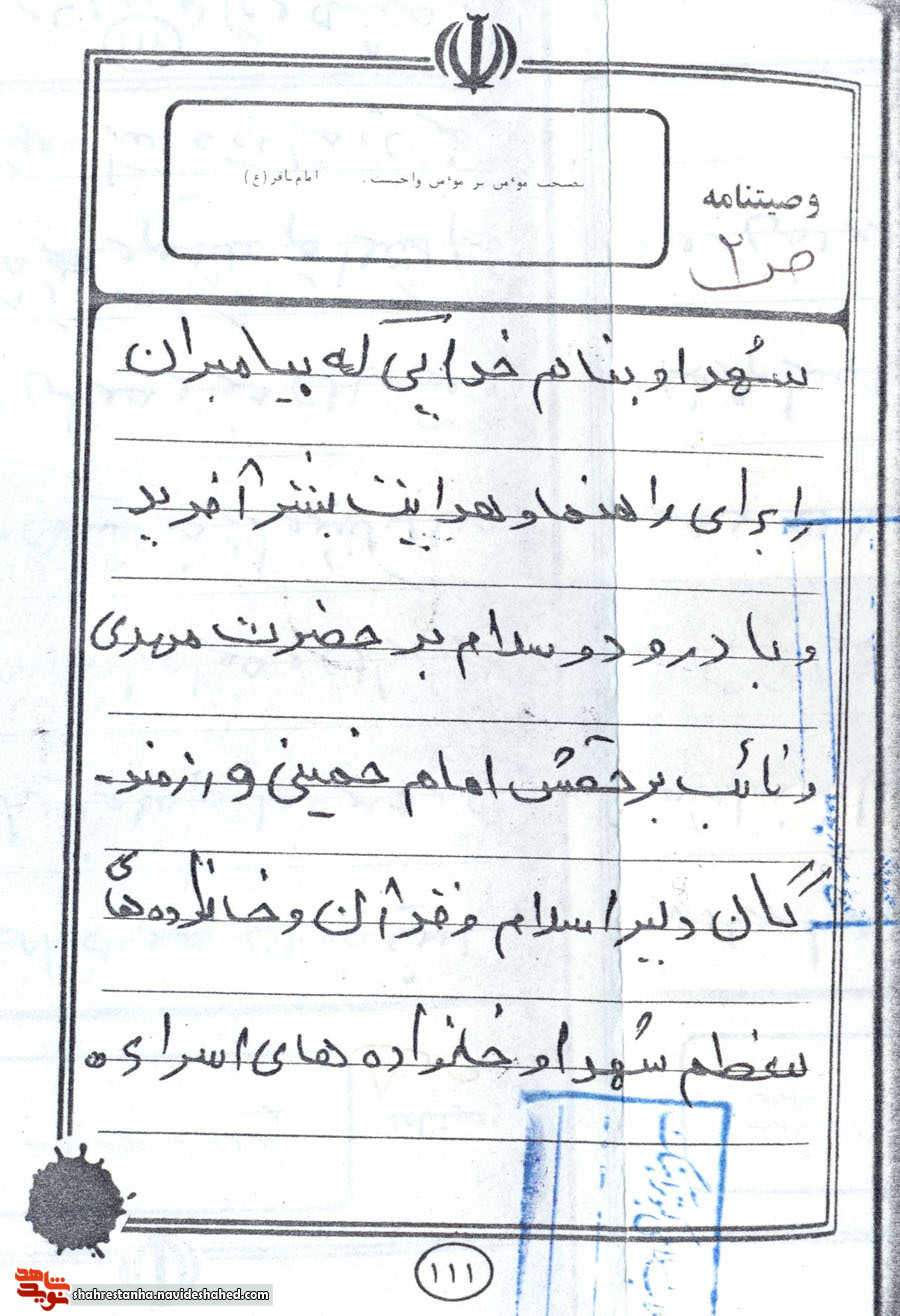 نصیحت موٴمن بر موٴمن واجبست. امام باقر (ع)
وصیتنامه
ص ۲
شهدا و بنام خدایی که پیامبران
را برای راهنما و هدایت بشر آفرید
و با درود و سلام بر حضرت مهدی
و نائب برحقش امام خمینی و رزمند
گان دلیر اسلام و قرآن و خانواده های
معظم شهدا و خانواده های اسرای
۱۱۱
نوید شاهد
shahrestanha.navideshahed.com